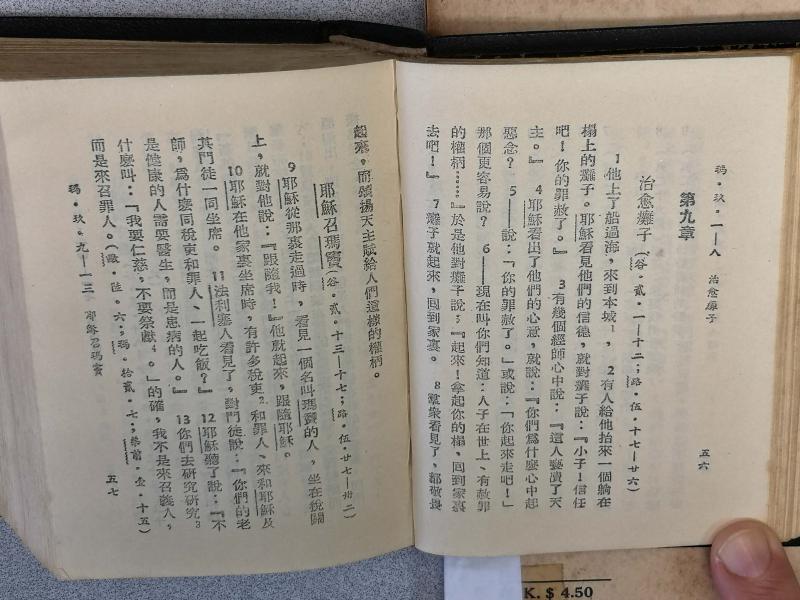 瑪・玖・一—八　治愈癱子　五六
第九章
治愈癱子（谷・貳・一—十二；路・伍・十七—廿六）
1他上了船過海，來到本城1，　2有人給他抬來一個躺在
榻上的癱子。耶穌看見他們的信德，就對癱子說：『小子！信任
吧！你的罪赦了。』　3有幾個經師心中說：『這人褻瀆了天
主。』　4耶穌看出了他們的心意，就說：『你們爲什麼心中起
惡念？　5——說：「你的罪赦了。」或說：「你起來走吧！」
那個更容易說？　6——現在叫你們知道：人子在世上、有赦罪
的權柄……』於是他對癱子說：『起來！拿起你的榻，回到家裏
去吧！』　7癱子就起來，回到家裏。　8羣衆看見了，都敬畏
起來，而頌揚天主賦給人們這樣的權柄。
耶穌召瑪竇（谷・貳・十三—十七；路・伍・廿七—卅二）
9耶穌從那裏走過時，看見一個名叫瑪竇的人，坐在稅關
上，就對他說：『跟隨我！』他就起來，跟隨耶穌。
10耶穌在他家裏坐席時，有許多稅吏2和罪人、來和耶穌及
其門徒一同坐席。　11法利塞人看見了，對門徒說：『你們的老
師，爲什麼同稅吏和罪人、一起吃飯？』　12耶穌聽了說：『不
是健康的人需要醫生，而是患病的人。』　13你們去研究研究3
什麼叫：「我要仁慈，不要祭獻4。」的確，我不是來召義人，
而是來召罪人。（歐・陸・六；瑪・拾貳・七；弟前・壹・十五）
瑪・玖・九—一三　耶穌召瑪竇　五七
K. $ 4.50